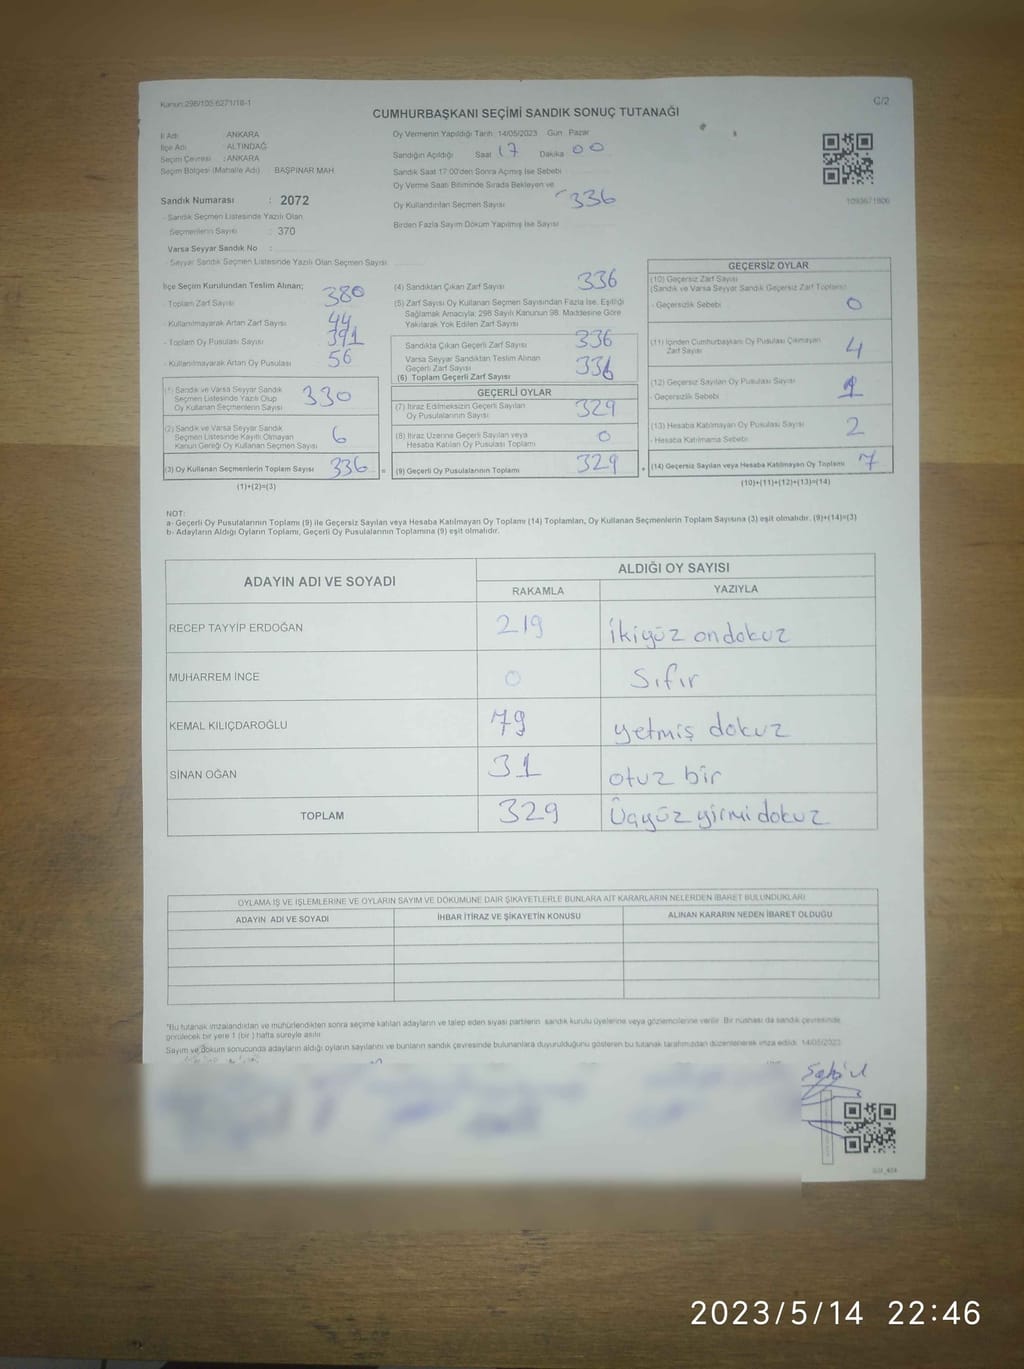 Kanun:298/105.6271/18-1
C/2
CUMHURBAŞKANI SEÇİMİ SANDIK SONUÇ TUTANAĞI
İl Adı : ANKARA
İlçe Adı : ALTINDAĞ
Seçim Çevresi : ANKARA
Seçim Bölgesi (Mahalle Adı) BAŞPINAR MAH
Sandık Numarası : 2072
- Sandık Seçmen Listesinde Yazılı Olan
Seçmenlerin Sayısı : 370
Varsa Seyyar Sandık No :
- Seyyar Sandık Seçmen Listesinde Yazılı Olan Seçmen Sayısı
Oy Vermenin Yapıldığı Tarih :14/05/2023 Gün Pazar
Sandığın Açıldığı Saat 17 Dakika 00
Sandık Saat 17:00'den Sonra Açımış İse Sebebi
Oy Verme Saati Bitiminde Sırada Bekleyen ve
Oy Kullandırılan Seçmen Sayısı 336
Birden Fazla Sayım Döküm Yapılmış İse Sayısı
1093671806
İlçe Seçim Kurulundan Teslim Alınan;
- Toplam Zarf Sayısı 380
- Kullanılmayarak Artan Zarf Sayısı 44
- Toplam Oy Pusulası Sayısı 391
- Kullanılmayarak Artan Oy Pusulası 56
(1) Sandık ve Varsa Seyyar Sandık
Seçmen Listesinde Yazılı Olup
Oy Kullanan Seçmenlerin Sayısı 330
(2) Sandık ve Varsa Seyyar Sandık
Seçmen Listesinde Kayıtlı Olmayan
Kanun Gereği Oy Kullanan Seçmen Sayısı 6
(3) Oy Kullanan Seçmenlerin Toplam Sayısı 336 =
(1)+(2)=(3)
(4) Sandıktan Çıkan Zarf Sayısı 336
(5) Zarf Sayısı Oy Kullanan Seçmen Sayısından Fazla İse, Eşitliği
Sağlamak Amacıyla; 298 Sayılı Kanunun 98. Maddesine Göre
Yakılarak Yok Edilen Zarf Sayısı
Sandıkta Çıkan Geçerli Zarf Sayısı 336
Varsa Seyyar Sandıktan Teslim Alınan
Geçerli Zarf Sayısı
(6) Toplam Geçerli Zarf Sayısı 336
GEÇERLİ OYLAR
(7) İtiraz Edilmeksizin Geçerli Sayılan
Oy Pusulalarının Sayısı 329
(8) İtiraz Üzerine Geçerli Sayılan veya
Hesaba Katılan Oy Pusulası Toplamı 0
(9) Geçerli Oy Pusulalarının Toplamı 329 +
GEÇERSİZ OYLAR
(10) Geçersiz Zarf Sayısı
(Sandık ve Varsa Seyyar Sandık Geçersiz Zarf Toplamı)
- Geçersizlik Sebebi 0
(11) İçinden Cumhurbaşkanı Oy Pusulası Çıkmayan
Zarf Sayısı 4
(12) Geçersiz Sayılan Oy Pusulası Sayısı 1
- Geçersizlik Sebebi
(13) Hesaba Katılmayan Oy Pusulası Sayısı 2
- Hesaba Katılmama Sebebi
(14) Geçersiz Sayılan veya Hesaba Katılmayan Oy Toplamı 7
(10)+(11)+(12)+(13)=(14)
NOT:
a- Geçerli Oy Pusulalarının Toplamı (9) ile Geçersiz Sayılan veya Hesaba Katılmayan Oy Toplamı (14) Toplamları, Oy Kullanan Seçmenlerin Toplam Sayısına (3) eşit olmalıdır. (9)+(14)=(3)
b- Adayların Aldığı Oyların Toplamı, Geçerli Oy Pusulalarının Toplamına (9) eşit olmalıdır.
ADAYIN ADI VE SOYADI
ALDIĞI OY SAYISI
RAKAMLA YAZIYLA
RECEP TAYYİP ERDOĞAN 219 ikiyüz ondokuz
MUHARREM İNCE 0 Sıfır
KEMAL KILIÇDAROĞLU 79 yetmiş dokuz
SİNAN OĞAN 31 otuz bir
TOPLAM 329 Üçyüz yirmi dokuz
OYLAMA İŞ VE İŞLEMLERİNE VE OYLARIN SAYIM VE DÖKÜMÜNE DAİR ŞİKAYETLERLE BUNLARA AİT KARARLARIN NELERDEN İBARET BULUNDUKLARI
ADAYIN ADI VE SOYADI İHBAR İTİRAZ VE ŞİKAYETİN KONUSU ALINAN KARARIN NEDEN İBARET OLDUĞU
"Bu tutanak imzalandıktan ve mühürlendikten sonra seçime katılan adayların ve talep eden siyasi partilerin sandık kurulu üyelerine veya gözlemcilerine verilir. Bir nüshası da sandık çevresinde
görülecek bir yere 1 (bir ) hafta süreyle asılır.
Sayım ve döküm sonucunda adayların aldığı oyların sayılarını ve bunların sandık çevresinde bulunanlara duyurulduğunu gösteren bu tutanak tarafımızdan düzenlenerek imza edildi. 14/05/2023
2023/5/14 22:46